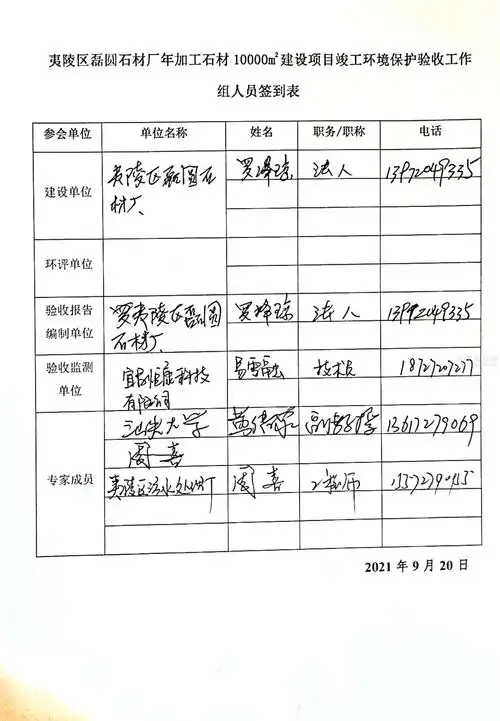 夷陵区磊圆石材厂年加工石材 10000㎡建设项目竣工环境保护验收工作
组人员签到表
参会单位 单位名称 姓名 职务/职称 电话
建设单位 夷陵区磊圆石材厂 法人 13972049335
环评单位
验收报告编制单位 夷陵区磊圆石材厂 法人 13972049335
验收监测单位 科技有限公司 技术员
专家成员 三峡大学 13617279069
周喜
夷陵区污水处理厂 周喜 工程师
2021 年 9 月 20 日